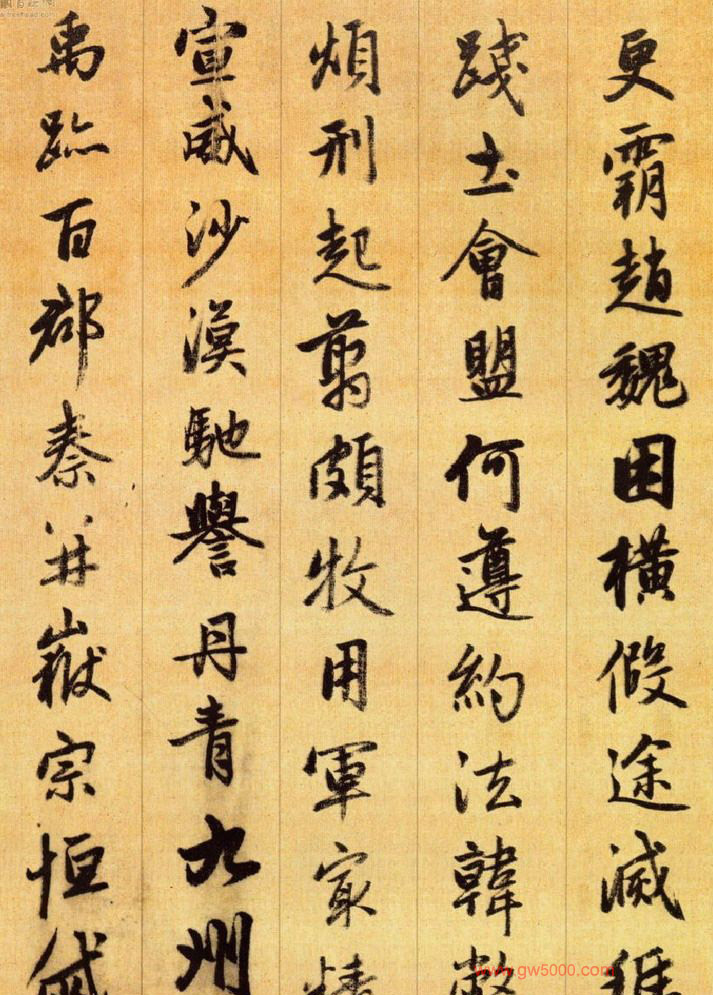 更霸趙魏困橫假途滅
踐土會盟何遵約法韓弊
煩刑起翦頗牧用軍冣精
宣威沙漠馳譽丹青九州
禹跡百郡秦并嶽宗恒岱
www.gw5000.com